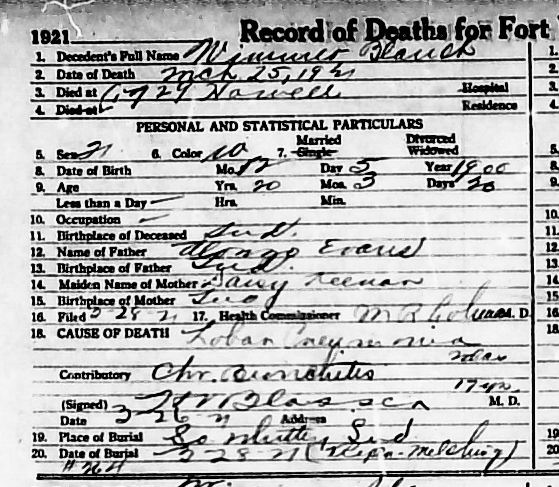 1921 Record of Deaths for Fort
1. Decedent's Full Name Wimmer Blanch
2. Date of Death Mch 25, 1921
3. Died at 1729 Howell Hospital
4. Died at Residence
PERSONAL AND STATISTICAL PARTICULARS
Married Divorced
5. Sex 6. Color W 7. Single Widowed
8. Date of Birth Mo. 12 Day 5 Year 1900
9. Age Yrs. 20 Mos. 3 Days 20
Less than a Day — Hrs. Min.
10. Occupation —
11. Birthplace of Deceased Ind.
12. Name of Father Alonzo Evans
13. Birthplace of Father Ind.
14. Maiden Name of Mother Daisy Keenan
15. Birthplace of Mother Ind
16. Filed 3-28-21 17. Health Commissioner M. D.
18. CAUSE OF DEATH Lobar Pneumonia
Contributory Chr. Bronchitis
17 yrs.
(Signed) M. D.
Date 3-26-21 Address
19. Place of Burial So Whitley Ind
20. Date of Burial 3-28-21 (-Melching)
#264
1.
2.
3.
4.
5.
8.
9.
10.
11.
12.
13.
14.
15.
16.
18.
19.
20.